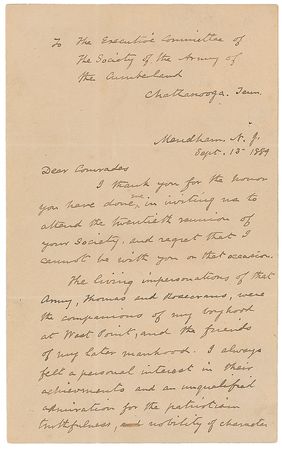 To the Executive Committee of
the Society of the Army of
the Cumberland
Chattanooga. Tenn.
Mendham, N. J.
Sept. 13 1889
Dear Comrades
I thank you for the honor
you have done, me in inviting us to
attend the twentieth reunion of
your Society, and regret that I
cannot be with you on that occasion.
The living impersonations of that
Army, Thomas and Rosecrans, were
the companions of my boyhood
at West Point, and the friends
of my later manhood. I always
felt a personal interest in their
achievements and an unqualified
admiration for the patriotism
truthfulness, and nobility of character